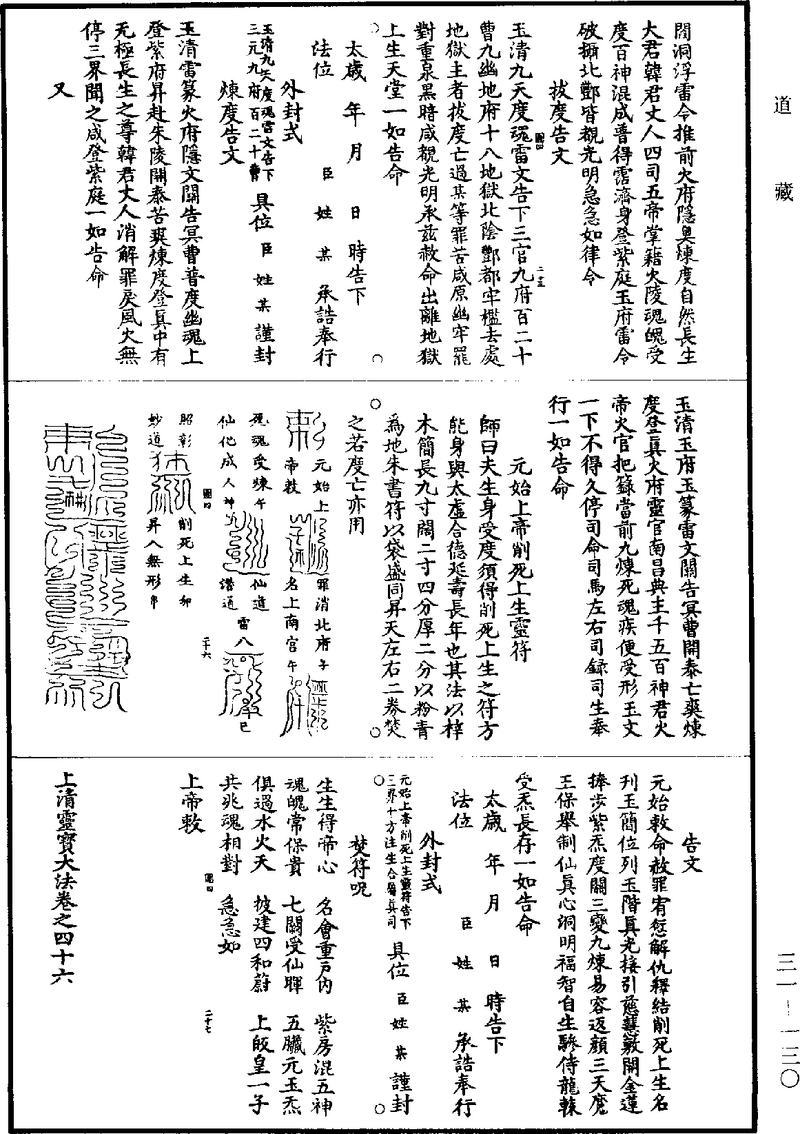 道藏
三一—一三〇
閤洞浮雷令推前火府隱奥煉度自然長生
大君韓君丈人四司五帝掌籍火陵魂魄受
度百神混成普得霑濟身登紫庭玉府雷令
破擲北酆皆覩光明急急如律令
拔度告文
玉清九天度魂雷文告下三官九府百二十
曹九幽地府十八地獄北陰酆都牢檻去處
地獄主者拔度亡過某等罪苦咸原幽牢罷
對重泉黑暗咸覩光明承兹赦命出離地獄
上生天堂一如告命
太歲 年 月 日 時告下
法位 臣 姓 某 承誥奉行
外封式
玉清九天度魂雷文告下
三元九府百二十曹 具位 臣 姓 某 謹封
煉度告文
玉清雷篆火府隱文關告冥曹普度幽魂上
登紫府昇赴朱陵開泰苦爽煉度登真中有
无極長生之尊韓君丈人消解罪戾風火無
停三界聞之咸登紫庭一如告命
又
玉清玉府玉篆雷文關告冥曹開泰亡爽煉
度登真火府靈官南昌典主千五百神君火
帝火官把籙當前九煉死魂疾便受形玉文
一下不得久停司命司馬左右司録司生奉
行一如告命
元始上帝削死上生靈符
師曰夫生身受度須得削死上生之符方
能身與太虛合德延壽長年也其法以梓
木簡長九寸闊二寸四分厚二分以粉青
爲地朱書符以袋盛同昇天左右二券焚
之若度亡亦用
元始上
帝敕
罪消北府子
名上南宫午
死魂受煉午
仙化成人神
仙道
諧通
雷
八
巳
昭彰
妙道
削死上生卯
昇入無形
二十六
告文
元始敕命赦罪宥愆解仇釋結削死上生名
刊玉簡位列玉階真光接引慈慧敷開金蓮
捧步紫炁度關三變九煉易容返顔三天魔
王保舉制仙真心洞明福智自生驂侍龍轅
受炁長存一如告命
太歲 年 月 日 時告下
法位 臣 姓 某 承誥奉行
外封式
元始上帝削死上生靈符告下
三界十方注生合屬真司 具位 臣 姓 某 謹封
焚符呪
生生得帝心 名會重戸内 紫房混五神
魂魄常保貴 七關受仙暉 五臟元玉炁
俱過水火天 披建四和蔚 上皈皇一子
共兆魂相對 急急如
上帝敕
二十七
上清靈寶大法卷之四十六